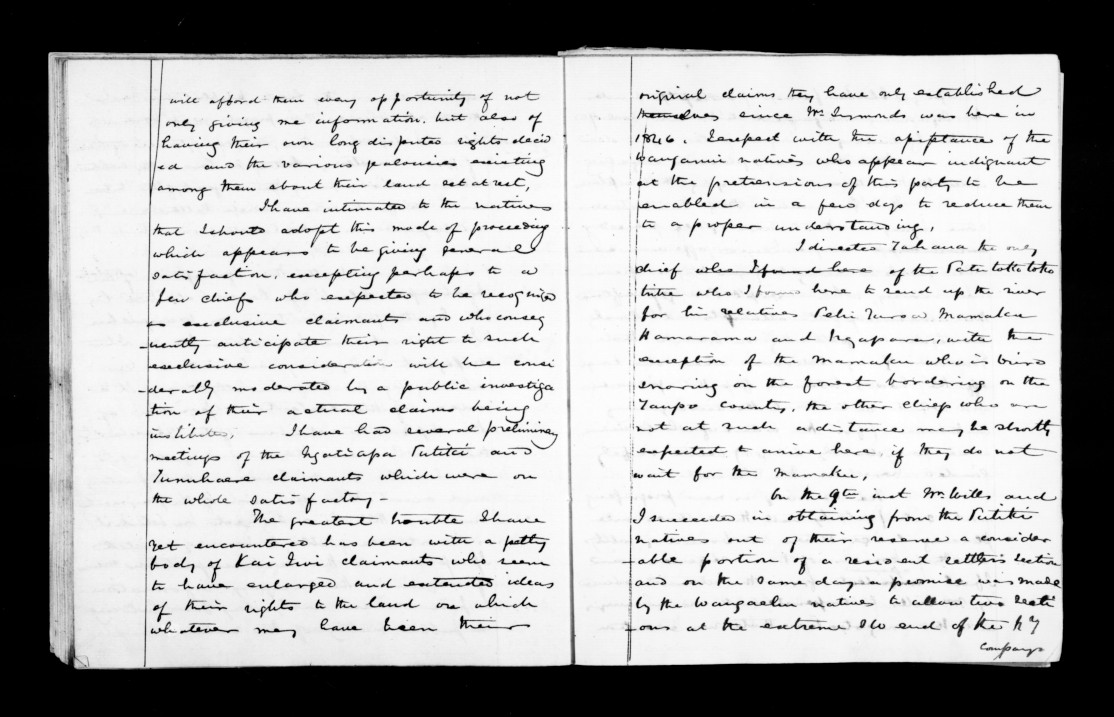 will afford them every opportunity of not
only giving me information but also of
having their own long disputed rights decid
ed and the various jealousies existing
among them about their land set at rest,
I have intimated to the natives
that I should adopt this mode of proceeding
which appears to be giving general
satisfaction, excepting perhaps to a
few chiefs who expected to be recognized
as exclusive claimants and who conseq
uently anticipate their right to such
exclusive consideration will be consi
derably moderated by a public investiga
tion of their actual claims being
instituted. I have had several preliminary
meetings of the Ngatiapa Putiki and
Tunuhaere claimants which were on
the whole satisfactory -
The greatest trouble I have
yet encountered has been with a petty
body of Kai Iwi claimants who seem
to have enlarged and extended ideas
of their rights to the land on which
whatever may have been their
original claims they have only established
themselves since Mr. Symonds was here in
1846. I expect with the assistance of the
Wanganui natives who appear indignant
at the pretensions of this party to be
enabled in a few days to reduce them
to a proper understanding,
I directed Tahana the only
chief who I found here of the Patutokotoko
tribe who I found here to send up the river
for his relatives Pehi Turoa Mamaku
Hamarama and Ngapara, with the
exception of the Mamaku who is bird
snaring in the forest bordering on the
Taupo country, the other chiefs who are
not at such a distance may be shortly
expected to arrive here, if they do not
wait for the Mamaku,
On the 9th inst Mr. Wills and
I succeeded in obtaining from the Putiki
natives out of their reserve a consider
able portion of a resident settlers section
and on the same day a promise was made
by the Wangaehu natives to allow two secti
ons at the extreme S W end of the N Z
Companys